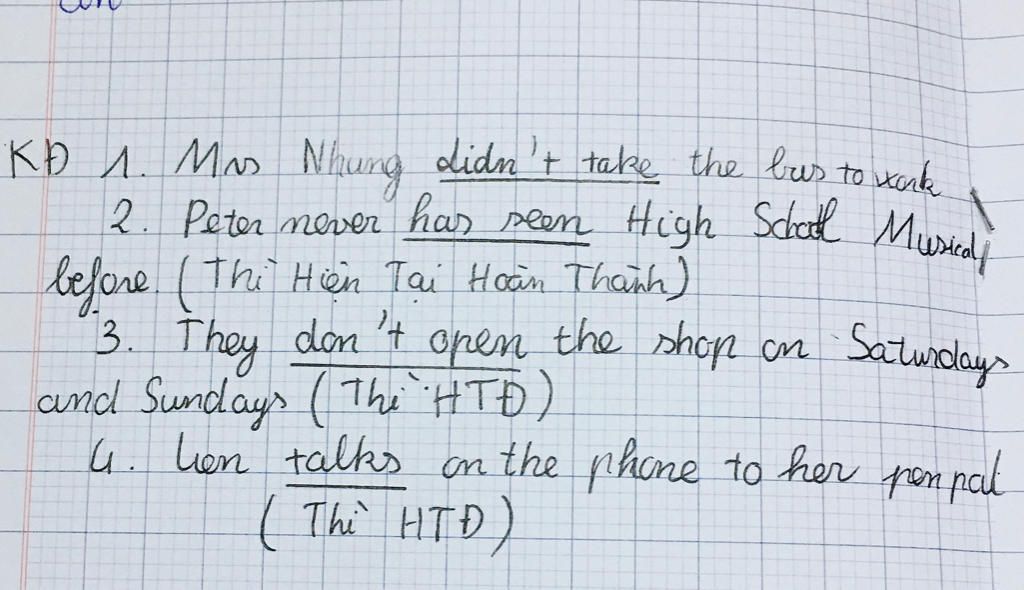 KĐ 1. Mrs Nhung didn't take the bus to work
2. Peter never has seen High School Musical
before (Thì Hiện Tại Hoàn Thành)
3. They don't open the shop on Saturdays
and Sundays (Thì HTĐ)
4. Lien talks on the phone to her penpal
(Thì HTĐ)